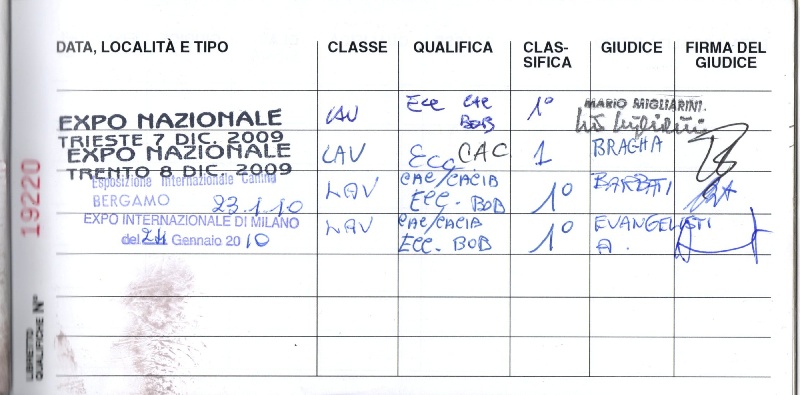 DATA, LOCALITÀ E TIPO CLASSE QUALIFICA CLAS-SIFICA GIUDICE FIRMA DEL GIUDICE
EXPO NAZIONALE
TRIESTE 7 DIC. 2009
LAV
Ecc CAC
BOB
1°
MARIO MIGLIARINI
EXPO NAZIONALE
TRENTO 8 DIC. 2009
LAV
Ecc CAC
1
BRAGHA
Esposizione Internazionale Canina
BERGAMO 23.1.10
LAV
CAC/CACIB
ECC. BOB
1°
BARBATI
EXPO INTERNAZIONALE DI MILANO
del 24 Gennaio 2010
LAV
CAC/CACIB
ECC. BOB
1°
EVANGELISTI
A.
19220
LIBRETTO
QUALIFICHE N°